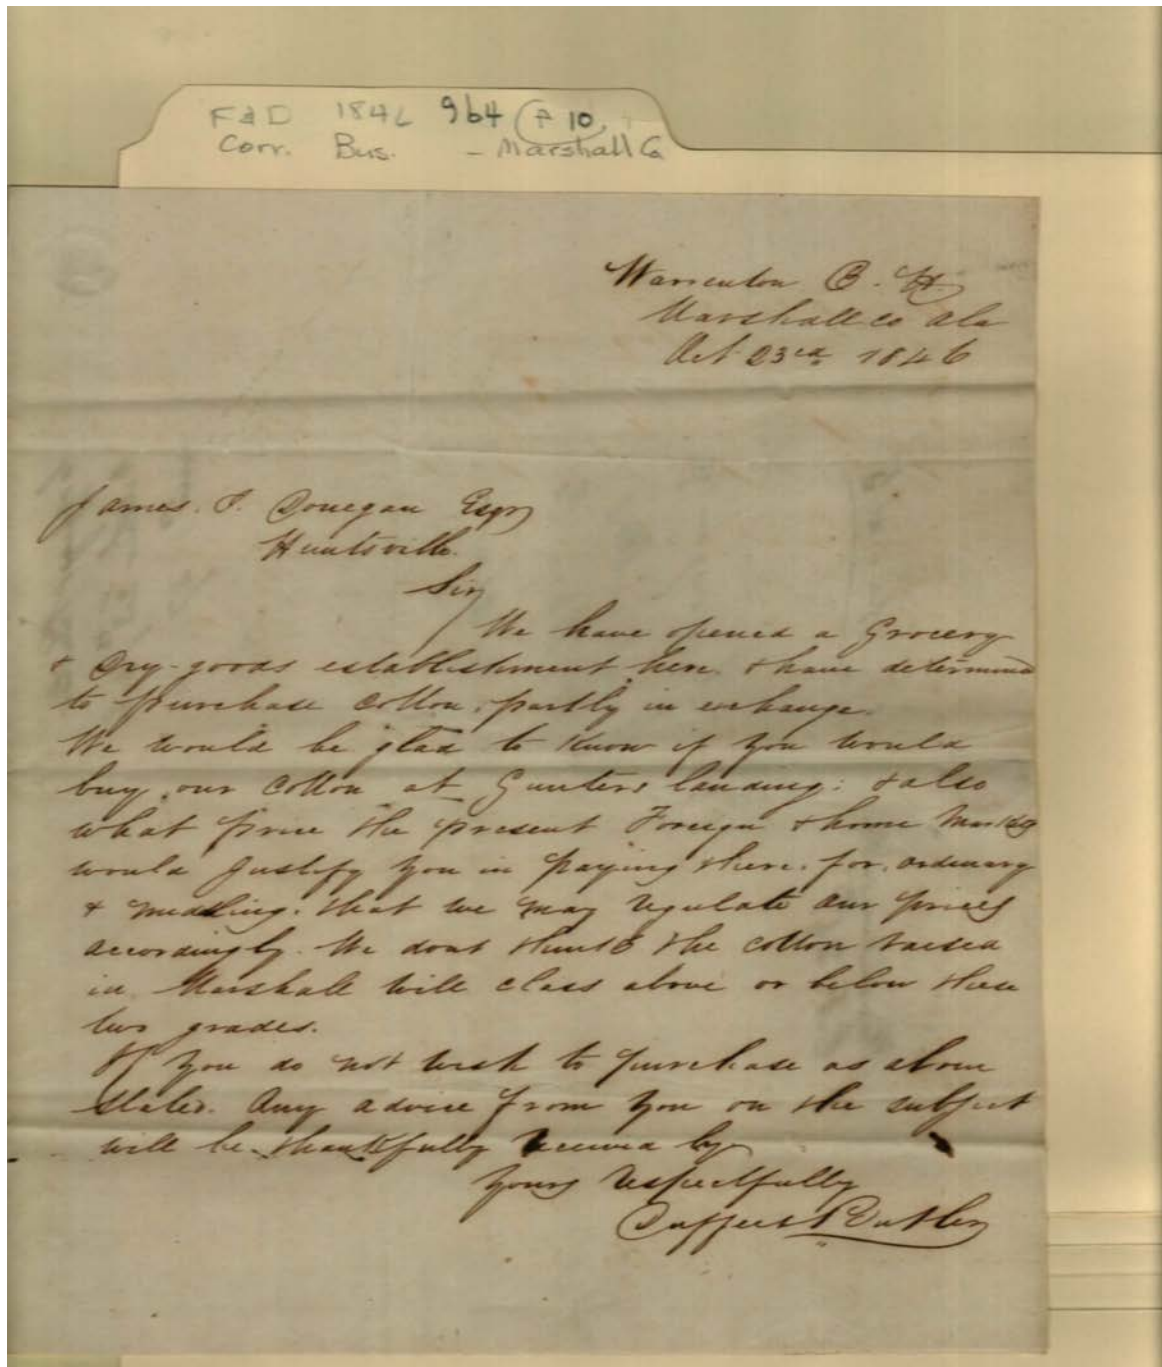 F&D 1846 964 (P 10)
Corr. Bus. - Marshall Co
Warrenton C. H.
Marshall co Ala
Oct 23rd 1846
James. J. Donegan Esqr
Huntsville.
Sir
We have opened a Grocery
& Dry-goods establishment here, & have determined
to purchase Cotton, partly in exchange.
We would be glad to know if you would
buy our Cotton at Gunters landing: & also
what price the present Foreign & home Markets
would Justify you in paying there. for, ordinary
& middling. that we may regulate our prices
accordingly. We dont think the cotton raised
in Marshall will class above or below these
two grades.
If you do not wish to purchase as above
stated. Any advice from you on the subject
will be thankfully received by
Yours respectfully